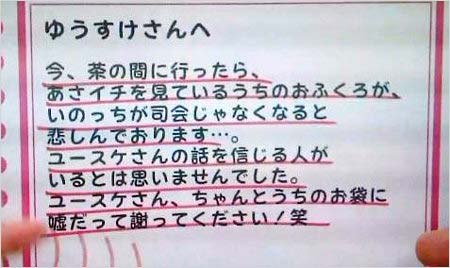 ゆうすけさんへ
今、茶の間に行ったら、
あさイチを見ているうちのおふくろが、
いのっちが司会じゃなくなると
悲しんでおります…。
ユースケさんの話を信じる人が
いるとは思いませんでした。
ユースケさん、ちゃんとうちのお袋に
嘘だって謝ってください！笑